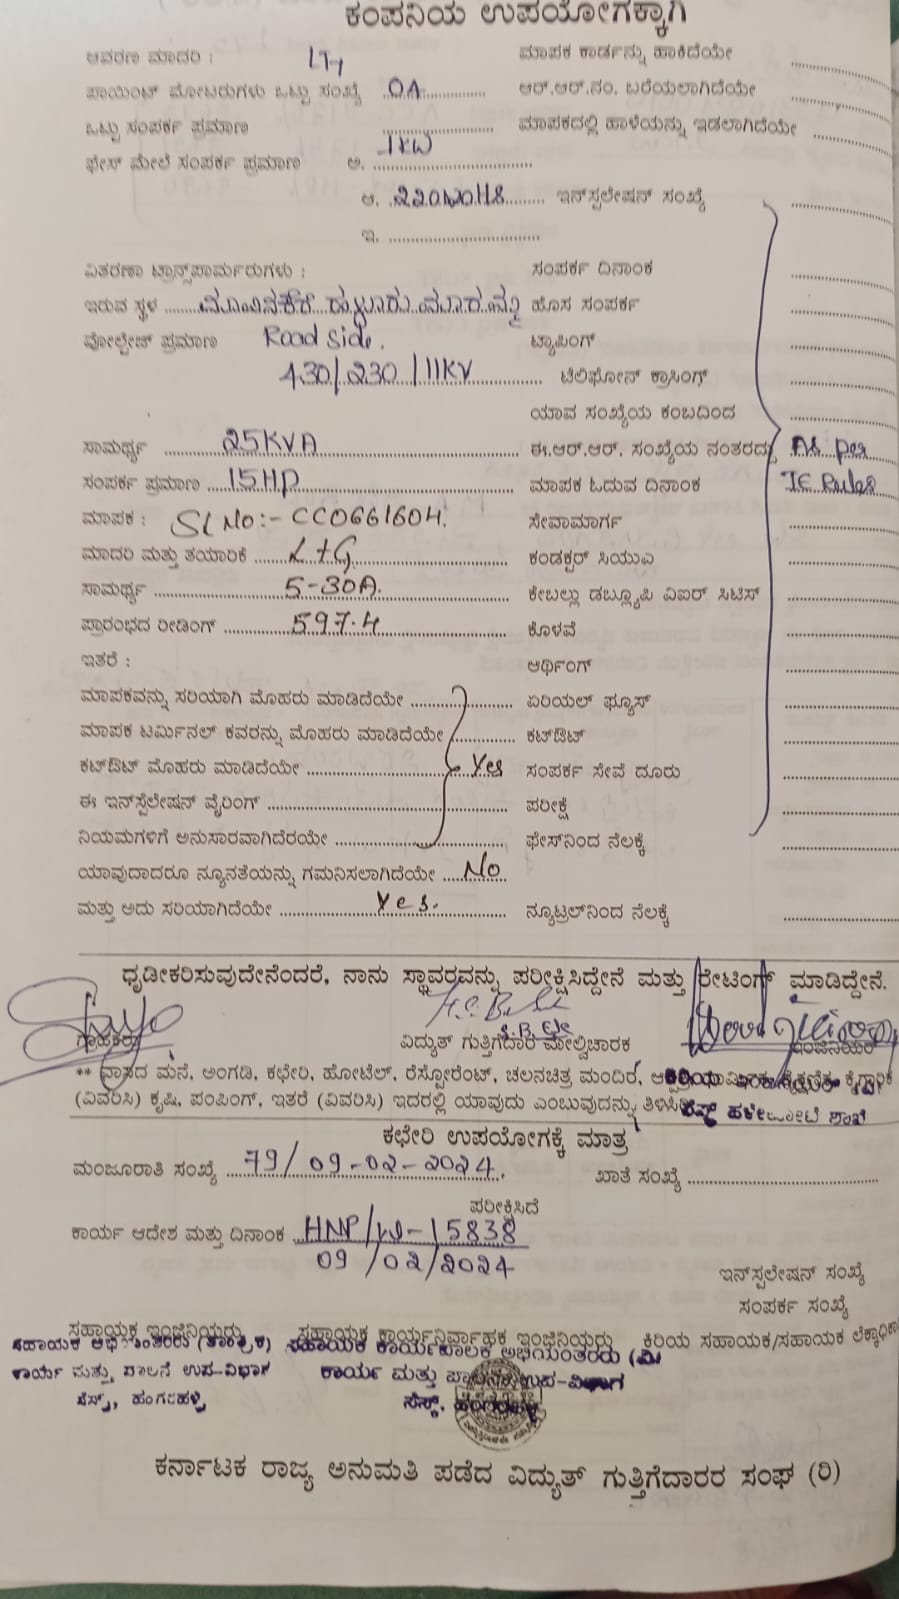 ಕಂಪನಿಯ ಉಪಯೋಗಕ್ಕಾಗಿ
ಆವರಣ ಮಾದರಿ : ಮಾಪಕ ಕಾರ್ಡನ್ನು ಹಾಕಿದೆಯೇ
ಪಾಯಿಂಟ್ ಮೋಟರುಗಳು ಒಟ್ಟು ಸಂಖ್ಯೆ 01 ಆರ್.ಆರ್.ನಂ. ಬರೆಯಲಾಗಿದೆಯೇ
ಒಟ್ಟು ಸಂಪರ್ಕ ಪ್ರಮಾಣ 1KW ಮಾಪಕದಲ್ಲಿ ಹಾಳೆಯನ್ನು ಇಡಲಾಗಿದೆಯೇ
ಫೇಸ್ ಮೇಲೆ ಸಂಪರ್ಕ ಪ್ರಮಾಣ ಅ.
ಆ. ಇನ್‌ಸ್ಟಲೇಷನ್ ಸಂಖ್ಯೆ
ಇ.
ವಿತರಣಾ ಟ್ರಾನ್ಸ್‌ಫಾರ್ಮರುಗಳು : ಸಂಪರ್ಕ ದಿನಾಂಕ
ಇರುವ ಸ್ಥಳ ಹೊಸ ಸಂಪರ್ಕ
ವೋಲ್ಟೇಜ್ ಪ್ರಮಾಣ Road side. ಟ್ಯಾಪಿಂಗ್
430/230/11KV ಟೆಲಿಫೋನ್ ಕ್ರಾಸಿಂಗ್
ಯಾವ ಸಂಖ್ಯೆಯ ಕಂಬದಿಂದ
ಸಾಮರ್ಥ್ಯ 25KVA ಈ.ಆರ್.ಆರ್. ಸಂಖ್ಯೆಯ ನಂತರದ್ದು As per
ಸಂಪರ್ಕ ಪ್ರಮಾಣ 15HP ಮಾಪಕ ಓದುವ ದಿನಾಂಕ IE Rules
ಮಾಪಕ : Sl No:- CC0661604 ಸೇವಾಮಾರ್ಗ
ಮಾದರಿ ಮತ್ತು ತಯಾರಿಕೆ L+G ಕಂಡಕ್ಟರ್ ಸಿಯುಎ
ಸಾಮರ್ಥ್ಯ 5-30A. ಕೇಬಲ್ಲು ಡಬ್ಲ್ಯೂಪಿ ವಿಐರ್ ಸಿಟಿಸ್
ಪ್ರಾರಂಭದ ರೀಡಿಂಗ್ 597.4 ಕೊಳವೆ
ಇತರೆ : ಆರ್ಥಿಂಗ್
ಮಾಪಕವನ್ನು ಸರಿಯಾಗಿ ಮೊಹರು ಮಾಡಿದೆಯೇ ಏರಿಯಲ್ ಫ್ಯೂಸ್
ಮಾಪಕ ಟರ್ಮಿನಲ್ ಕವರನ್ನು ಮೊಹರು ಮಾಡಿದೆಯೇ ಕಟ್‌ಔಟ್
ಕಟ್‌ಔಟ್ ಮೊಹರು ಮಾಡಿದೆಯೇ Yes ಸಂಪರ್ಕ ಸೇವೆ ದೂರು
ಈ ಇನ್‌ಸ್ಟಲೇಷನ್ ವೈರಿಂಗ್ ಪರೀಕ್ಷೆ
ನಿಯಮಗಳಿಗೆ ಅನುಸಾರವಾಗಿದೆರಯೇ ಫೇಸ್‌ನಿಂದ ನೆಲಕ್ಕೆ
ಯಾವುದಾದರೂ ನ್ಯೂನತೆಯನ್ನು ಗಮನಿಸಲಾಗಿದೆಯೇ No
ಮತ್ತು ಅದು ಸರಿಯಾಗಿದೆಯೇ Yes. ನ್ಯೂಟ್ರಲ್‌ನಿಂದ ನೆಲಕ್ಕೆ
ಧೃಡೀಕರಿಸುವುದೇನೆಂದರೆ, ನಾನು ಸ್ಥಾವರವನ್ನು ಪರೀಕ್ಷಿಸಿದ್ದೇನೆ ಮತ್ತು ರೇಟಿಂಗ್ ಮಾಡಿದ್ದೇನೆ.
ಗ್ರಾಹಕರು ವಿದ್ಯುತ್ ಗುತ್ತಿಗೆದಾರ ಮೇಲ್ವಿಚಾರಕ ಇಂಜಿನಿಯರ್
** ವಾಸದ ಮನೆ, ಅಂಗಡಿ, ಕಛೇರಿ, ಹೋಟೆಲ್, ರೆಸ್ಟೋರೆಂಟ್, ಚಲನಚಿತ್ರ ಮಂದಿರ,
(ವಿವರಿಸಿ) ಕೃಷಿ, ಪಂಪಿಂಗ್, ಇತರೆ (ವಿವರಿಸಿ) ಇದರಲ್ಲಿ ಯಾವುದು ಎಂಬುವುದನ್ನು
ಕಛೇರಿ ಉಪಯೋಗಕ್ಕೆ ಮಾತ್ರ
ಮಂಜೂರಾತಿ ಸಂಖ್ಯೆ 79/09-02-2024. ಖಾತೆ ಸಂಖ್ಯೆ
ಪರೀಕ್ಷಿಸಿದೆ
ಕಾರ್ಯ ಆದೇಶ ಮತ್ತು ದಿನಾಂಕ
09/02/2024
ಇನ್‌ಸ್ಟಲೇಷನ್ ಸಂಖ್ಯೆ
ಸಂಪರ್ಕ ಸಂಖ್ಯೆ
ಸಹಾಯಕ ಇಂಜಿನಿಯರು ಸಹಾಯಕ ಕಾರ್ಯನಿರ್ವಾಹಕ ಇಂಜಿನಿಯರು ಕಿರಿಯ ಸಹಾಯಕ/ಸಹಾಯಕ
ಕಾರ್ಯ ಮತ್ತು ಪಾಲನೆ ಉಪ-ವಿಭಾಗ ಕಾರ್ಯ ಮತ್ತು ಪಾಲನೆ ಉಪ-ವಿಭಾಗ
ಕರ್ನಾಟಕ ರಾಜ್ಯ ಅನುಮತಿ ಪಡೆದ ವಿದ್ಯುತ್ ಗುತ್ತಿಗೆದಾರರ ಸಂಘ (ರಿ)